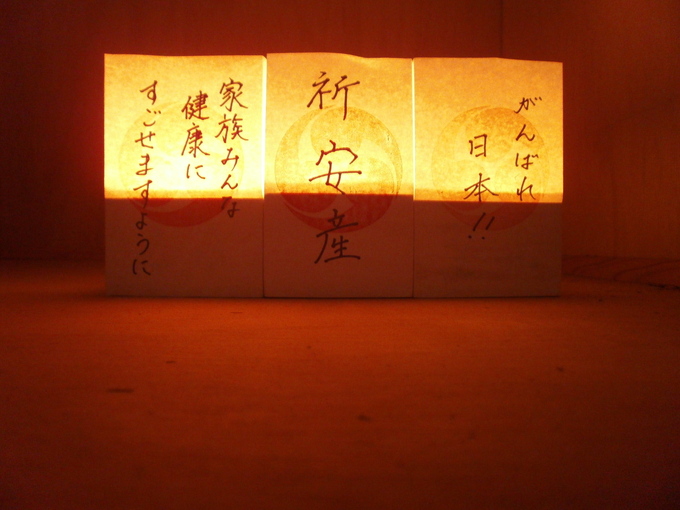 家族みんな
健康に
すごせますように
祈安産
がんばれ
日本!!